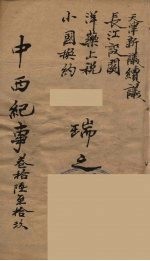 天津新議續議
長江設關
洋藥上稅
小國換約
瑞之
中西紀事 卷拾陸至拾玖